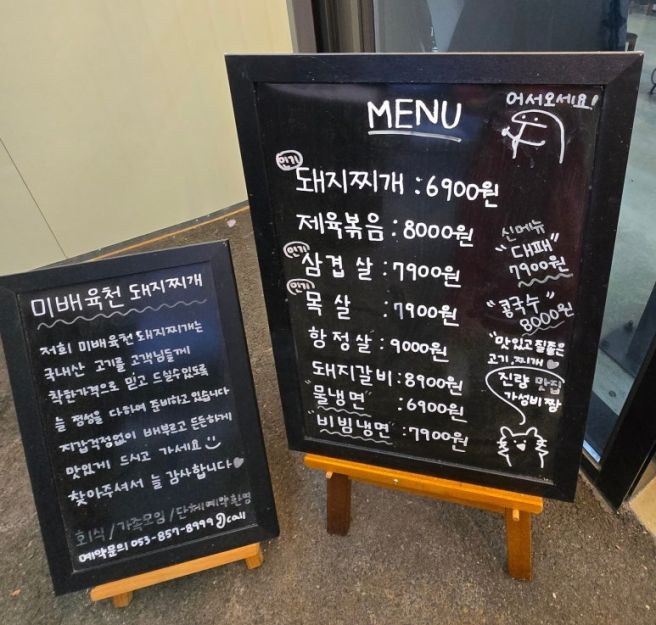 미배육천 돼지찌개
저희 미배육천돼지찌개는
국내산 고기를 고객님들께
착한가격으로 믿고 드실수있도록
늘 정성을 다하여 준비하고있습니다
지갑걱정없이 배부르고 든든하게
맛있게 드시고 가세요
찾아주셔서 늘 감사합니다
회식 / 가족모임 / 단체예약환영
예약문의 053-857-8999 call
MENU
어서오세요!
인기
돼지찌개 : 6900원
제육볶음 : 8000원
인기
삼겹살 : 7900원
인기
목살 : 7900원
항정살 : 9000원
돼지갈비 : 8900원
"물냉면" : 6900원
"비빔냉면" : 7900원
신메뉴
"대패"
7900원
"콩국수"
8000원
"맛있고질좋은
고기,찌개
진량 맛집
가성비짱